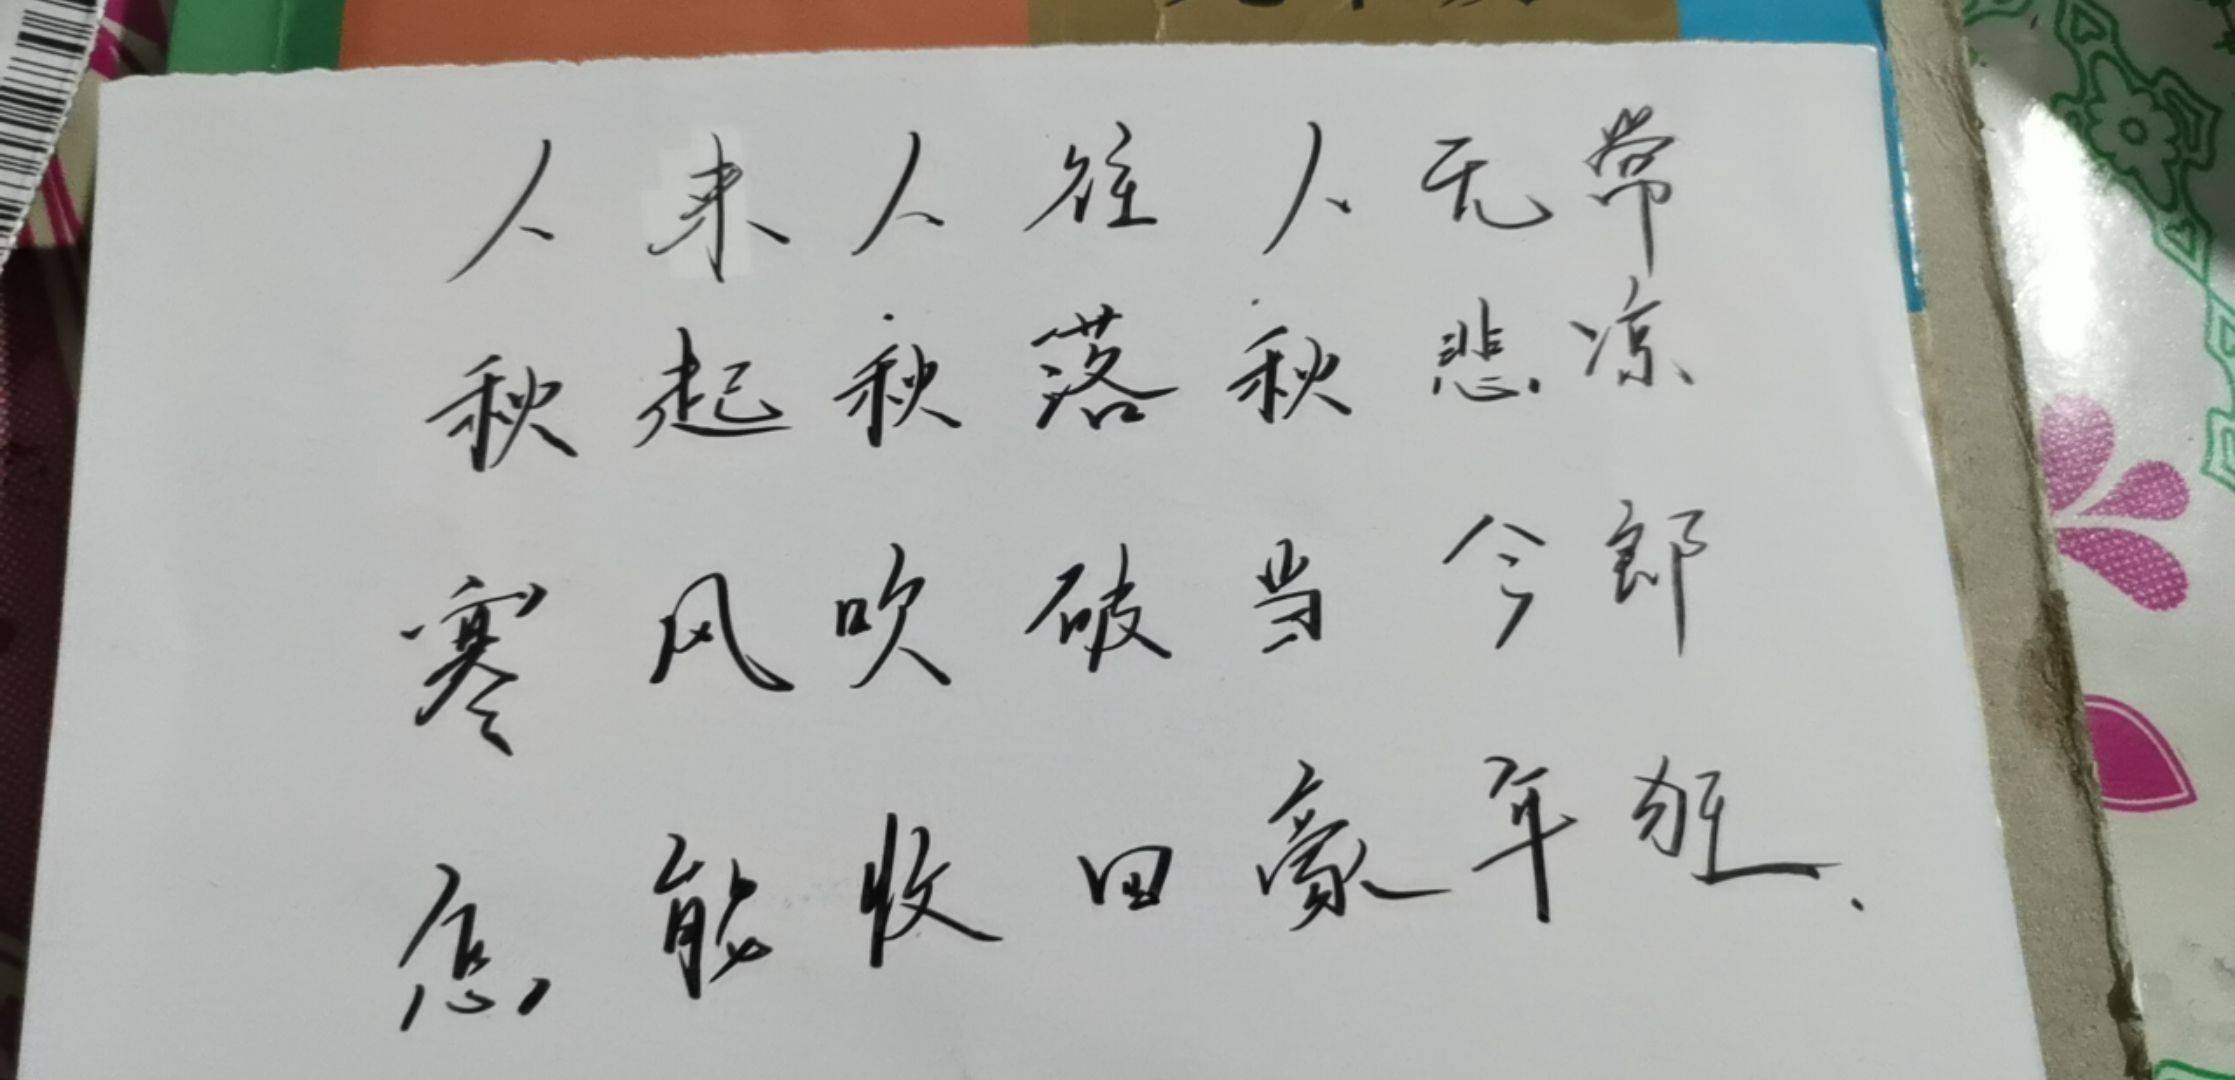 人来人往人无常
秋起秋落秋悲凉
寒风吹破当今郎
怎能收回豪年狂.